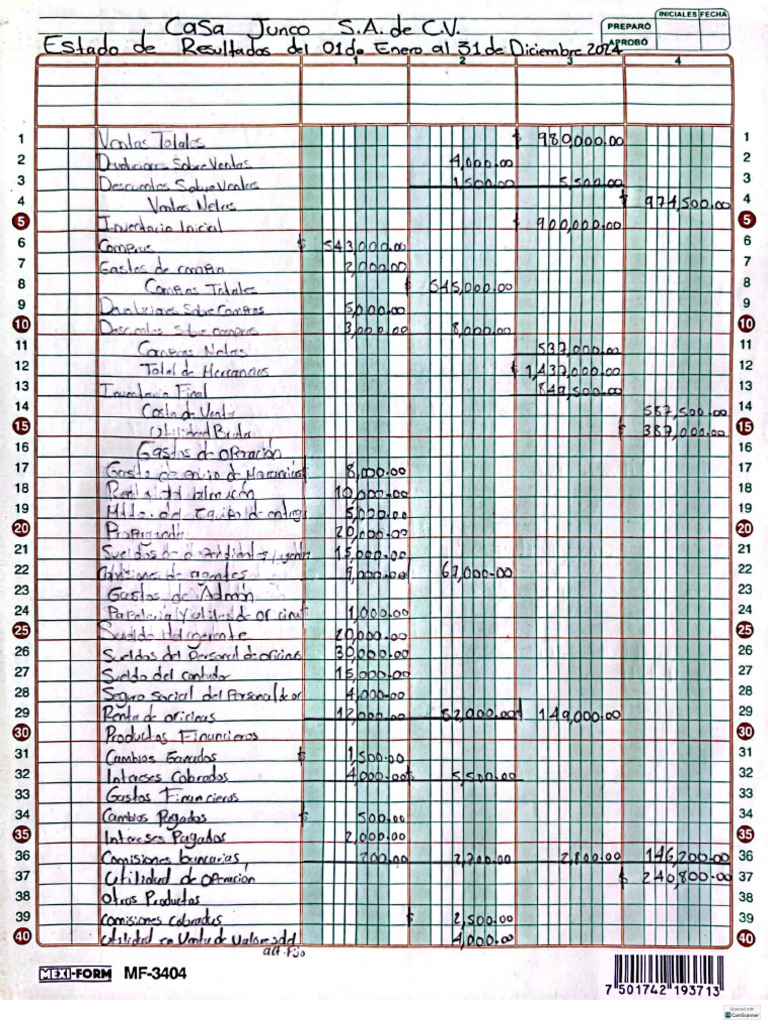 Casa Junco S.A. de C.V.
INICIALES FECHA
PREPARÓ
APROBÓ
Estado de Resultados del 01 de Enero al 31 de Diciembre 2024
1 2 3 4
1 Ventas Totales $ 980,000.00 1
2 Devoluciones Sobre Ventas 4,000.00 2
3 Descuentos Sobre Ventas 1,500.00 5,500.00 3
4 Ventas Netas $ 974,500.00 4
5 Inventario Inicial $ 900,000.00 5
6 Compras $ 543,000.00 6
7 Gastos de compra 2,000.00 7
8 Compras Totales $ 545,000.00 8
9 Devoluciones Sobre Compras 5,000.00 9
10 Descuentos Sobre compras 3,000.00 8,000.00 10
11 Compras Netas 537,000.00 11
12 Total de Mercancias $ 1,437,000.00 12
13 Inventario Final 849,500.00 13
14 Costo de Venta 587,500.00 14
15 Utilidad Bruta $ 387,000.00 15
16 Gastos de Operación 16
17 Gasto de envio de Mercancias 8,000.00 17
18 Renta del almacén 10,000.00 18
19 Mtto. del Equipo de entrega 5,000.00 19
20 Propaganda 20,000.00 20
21 Sueldos de 15,000.00 21
22 Comisiones de agentes 9,000.00 67,000.00 22
23 Gastos de Admón 23
24 Papeleria y utiles de oficina 1,000.00 24
25 Sueldo del gerente 20,000.00 25
26 Sueldos del Personal de oficinas 30,000.00 26
27 Sueldo del contador 15,000.00 27
28 Seguro social del Personal de of 4,000.00 28
29 Renta de oficinas 12,000.00 82,000.00 149,000.00 29
30 Productos Financieros 30
31 Cambios Ganados $ 1,500.00 31
32 Intereses Cobrados 4,000.00 $ 5,500.00 32
33 Gastos Financieros 33
34 Cambios Pagados $ 500.00 34
35 Intereses Pagados 2,000.00 35
36 Comisiones bancarias 200.00 2,700.00 2,800.00 146,200.00 36
37 Utilidad de Operación $ 240,800.00 37
38 Otros Productos 38
39 Comisiones Cobradas $ 2,500.00 39
40 Utilidad en Venta de Valores del 4,000.00 40
act. Fijo
MEXI-FORM MF-3404
7 501742 193713
Scanned with
CamScanner